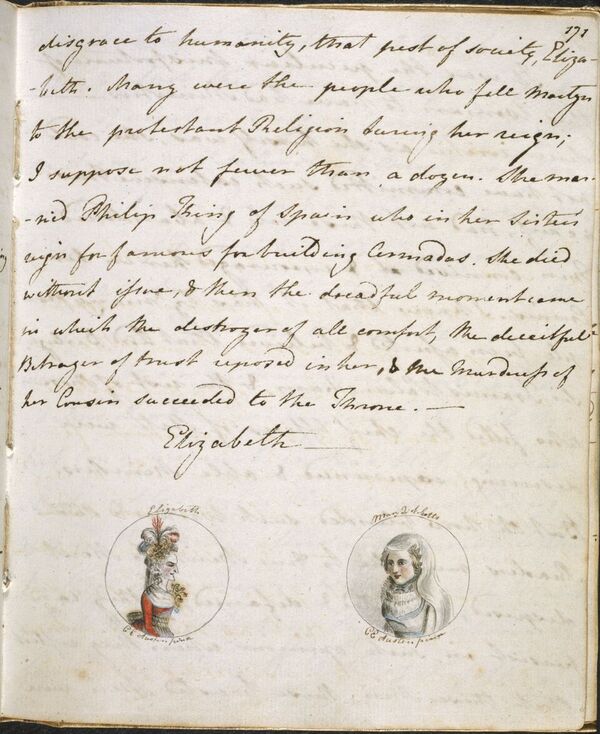 171
disgrace to humanity, that pest of society, Eliza-
-beth. Many were the people who fell martyrs
to the protestant Religion during her reign;
I suppose not fewer than a dozen. She mar-
-ried Philip King of Spain who in her Sister's
reign for famous for building Armadas. She died
without issue, & then the dreadful moment came
in which the destroyer of all comfort, the deceitful
Betrayer of trust reposed in her, & the Murderess of
her Cousin succeeded to the Throne. —
Elizabeth —
Elizabeth
Mary Q. of Scots
C E Austen pinx
C E Austen pinx